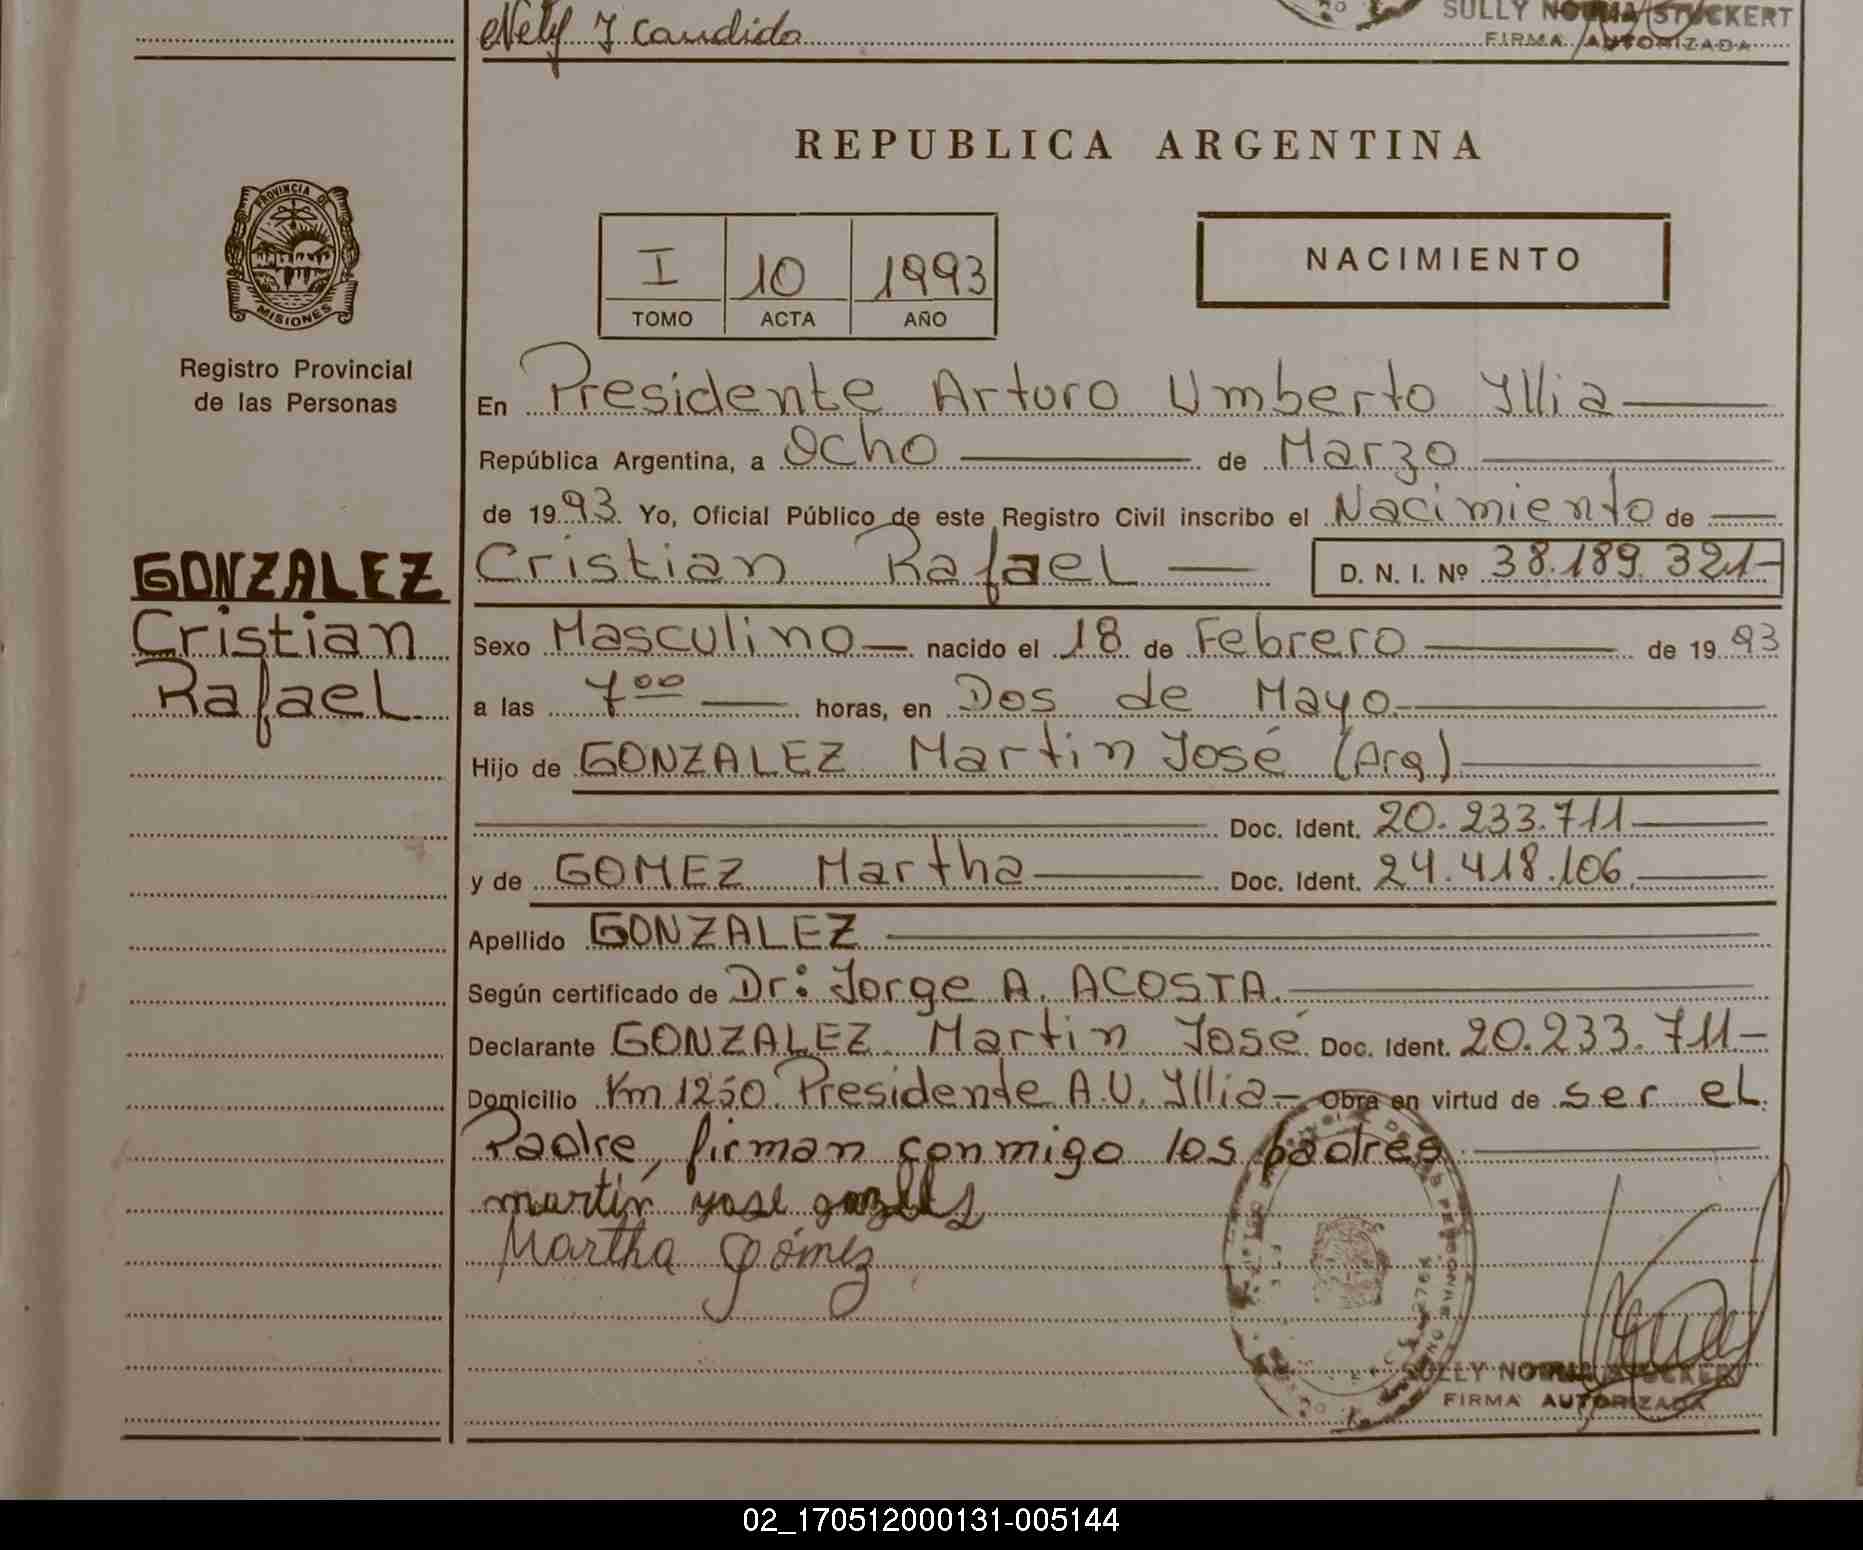 Nely Y Candido
SULLY NORMA STUCKERT
FIRMA AUTORIZADA
REPUBLICA ARGENTINA
PROVINCIA DE
MISIONES
Registro Provincial
de las Personas
I 10 1993
TOMO ACTA AÑO
NACIMIENTO
En Presidente Arturo Umberto Yllia
República Argentina, a Ocho de Marzo
de 1993 Yo, Oficial Público de este Registro Civil inscribo el Nacimiento de
GONZALEZ
Cristian
Rafael
Cristian Rafael D. N. I. Nº 38.189.321-
Sexo Masculino nacido el 18 de Febrero de 1993
a las 7 00 horas, en Dos de Mayo.
Hijo de GONZALEZ Martin José (Arg)
Doc. Ident. 20.233.711
y de GOMEZ Martha Doc. Ident. 24.418.106.
Apellido GONZALEZ
Según certificado de Dr: Jorge A. ACOSTA.
Declarante GONZALEZ Martin José Doc. Ident. 20.233.711-
Domicilio Km 1250 Presidente A.U. Yllia- Obra en virtud de ser el
Padre, firman conmigo los padres
martin yose
Martha gómez
SULLY NORMA STUCKERT
FIRMA AUTORIZADA
02_170512000131-005144